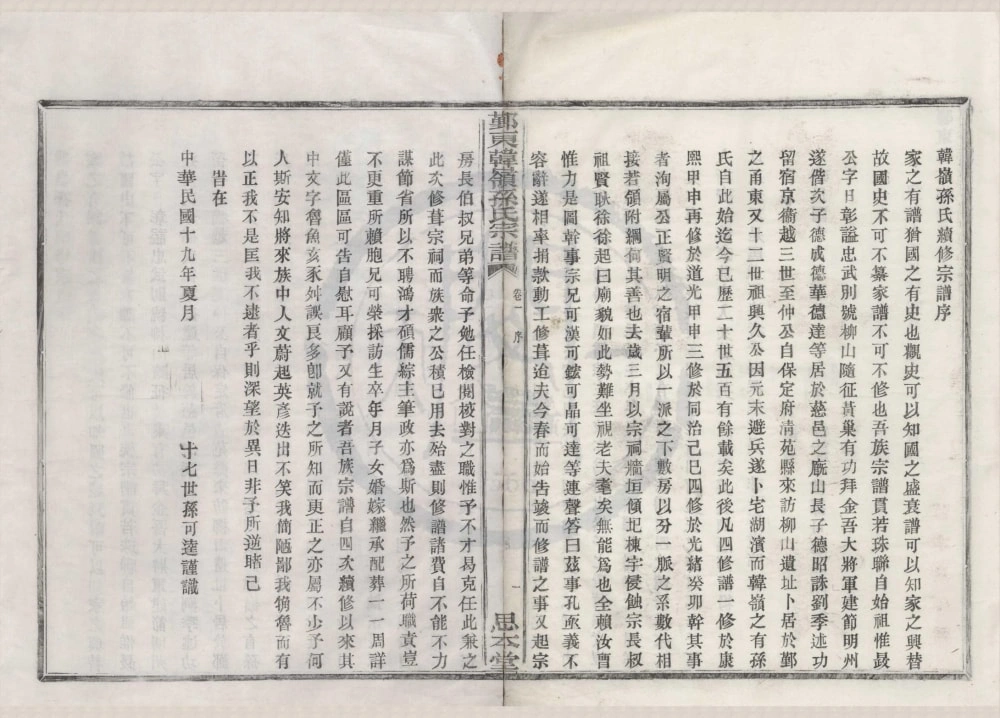 韓嶺孫氏續修宗譜序
家之有譜猶國之有史也觀史可以知國之盛衰譜可以知家之興替
故國史不可不纂家譜不可不修也吾族宗譜貫若珠聯自始祖惟晸
公字日彰謚忠武別號柳山隨征黃巢有功拜金吾大將軍建節明州
遂偕次子德成德華德達等居於慈邑之厩山長子德昭誅劉季述功
留宿京衞越三世至仲公自保定府清苑縣來訪柳山遺址卜居於鄞
之甬東又十二世祖興久公因元末避兵遂卜宅湖濱而韓嶺之有孫
氏自此始迄今已歷二十世五百有餘載矣此後凡四修譜一修於康
熙甲申再修於道光甲申三修於同治己巳四修於光緒癸卯幹其事
者洵屬公正賢明之宿輩所以一派之下數房以分一脈之系數代相
接若領附綱何其善也去歲三月以宗祠牆垣傾圯棟宇侵蝕宗長叔
祖賢耿徐徐起曰廟貌如此勢難坐視老夫耄矣無能為也全賴汝曹
惟力是圖幹事宗兄可漢可鋐可晶可達等連聲答曰茲事孔亟義不
容辭遂相率捐款動工修葺迨夫今春而始告竣而修譜之事又起宗
鄞東韓嶺孫氏宗譜 卷一 序 一 思本堂
房長伯叔兄弟等命予勉任檢閱校對之職惟予不才曷克任此兼之
此次修葺宗祠而族衆之公積已用去殆盡則修譜諸費自不能不力
謀節省所以不聘鴻才碩儒綜主筆政亦為斯也然予之所荷職責豈
不更重所賴胞兄可榮採訪生卒年月子女婚嫁繼承配葬一一周詳
僅此區區可告自慰耳顧予又有說者吾族宗譜自四次續修以來其
中文字魯魚亥豕舛誤良多卽就予之所知而更正之亦屬不少予何
人斯安知將來族中人文蔚起英彥迭出不笑我簡陋鄙我猾魯而有
以正我不是匡我不逮者乎則深望於異日非予所逆睹已
旹在
中華民國十九年夏月
十七世孫可逵謹識